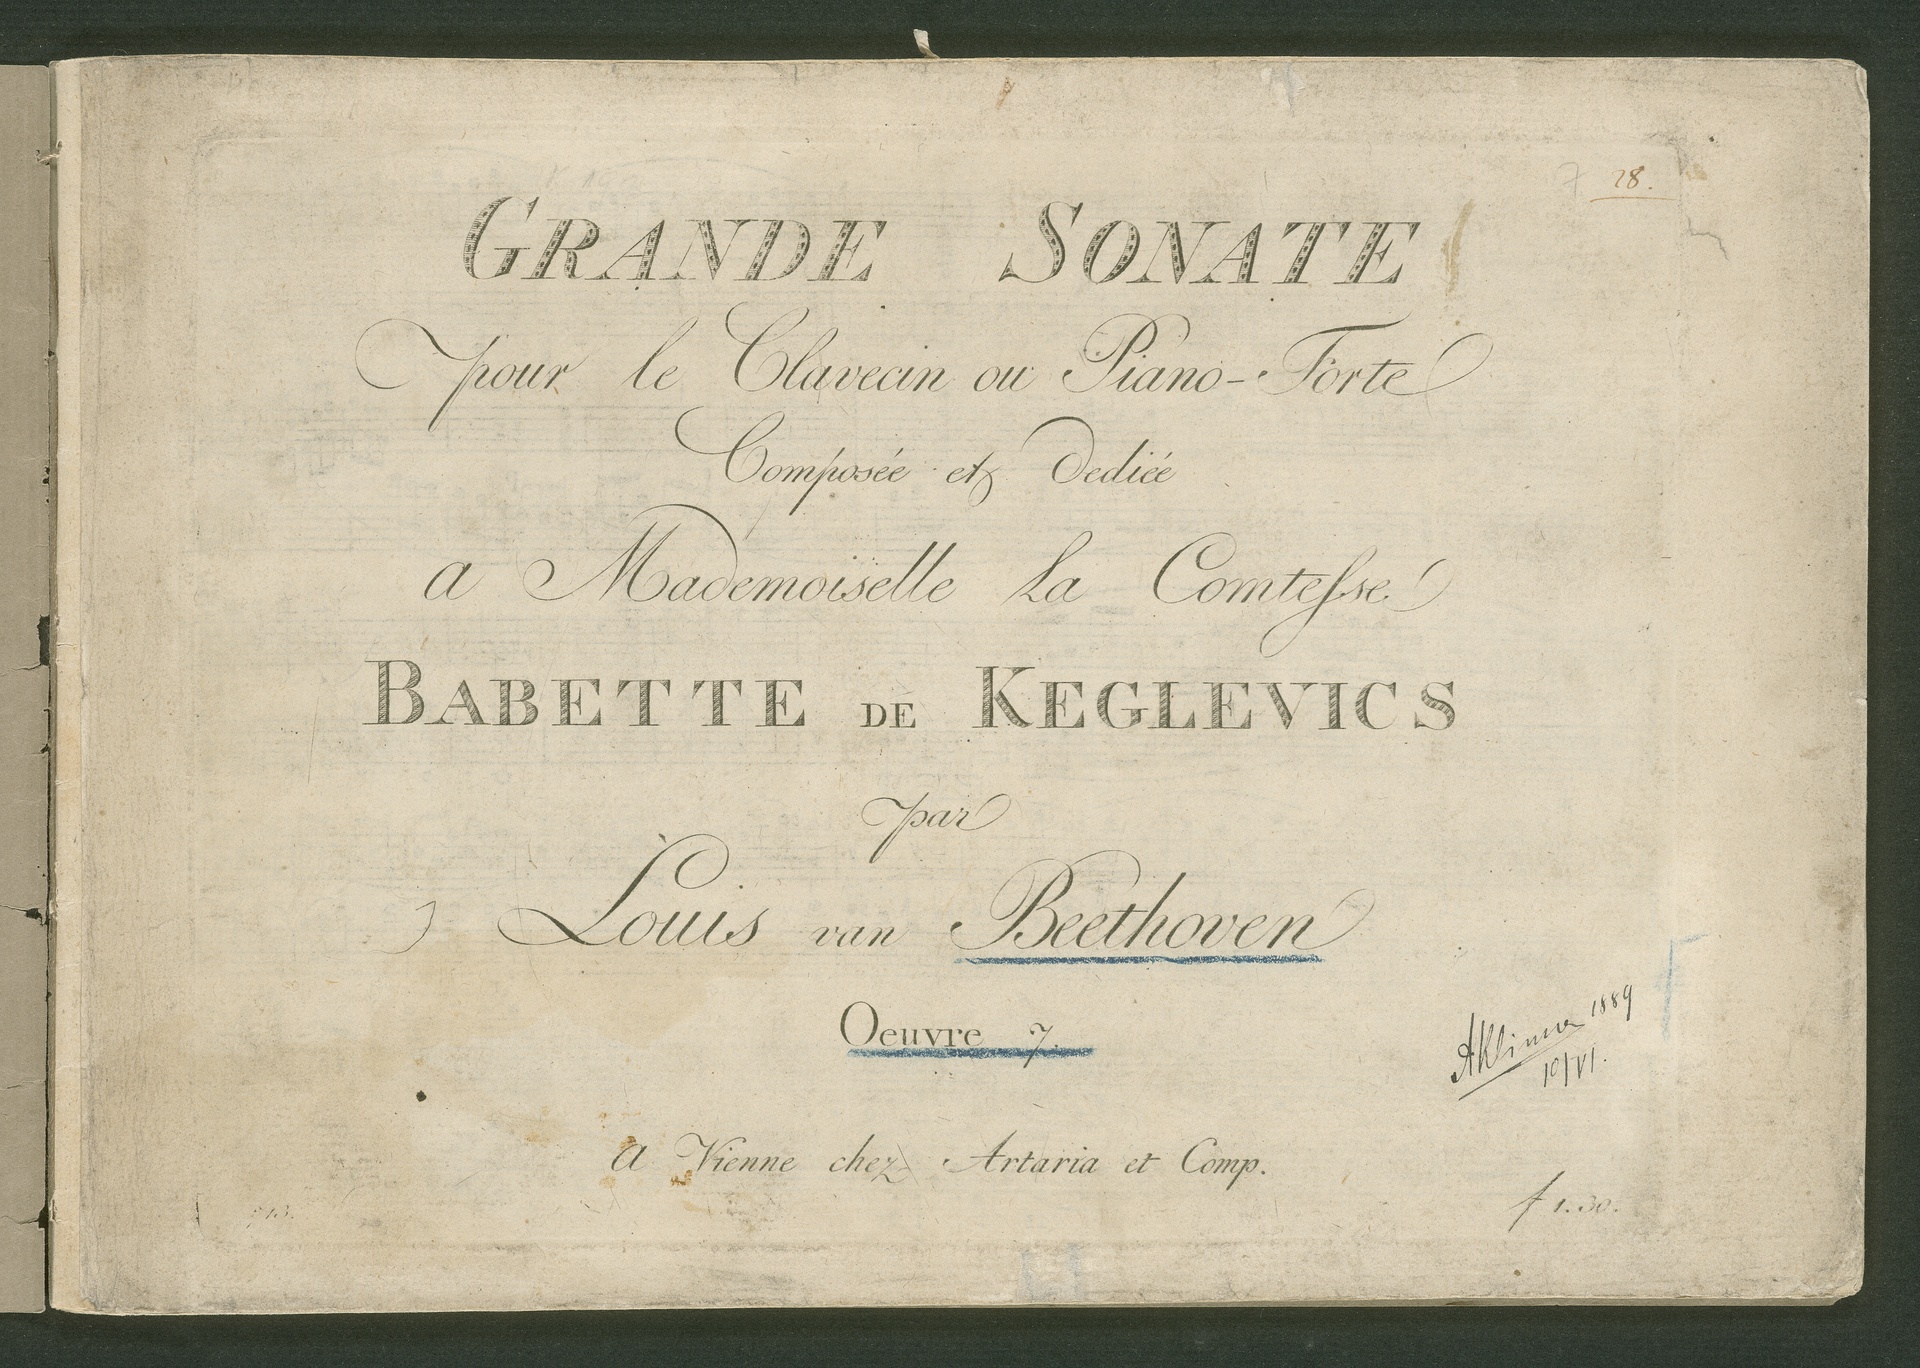 28.
GRANDE SONATE
pour le Clavecin ou Piano-Forte
Composée et Dediée
a Mademoiselle La Comtesse
BABETTE DE KEGLEVICS
par
Louis van Beethoven
Oeuvre 7.
1889
10/VI.
a Vienne chez Artaria et Comp.
f 1.30.